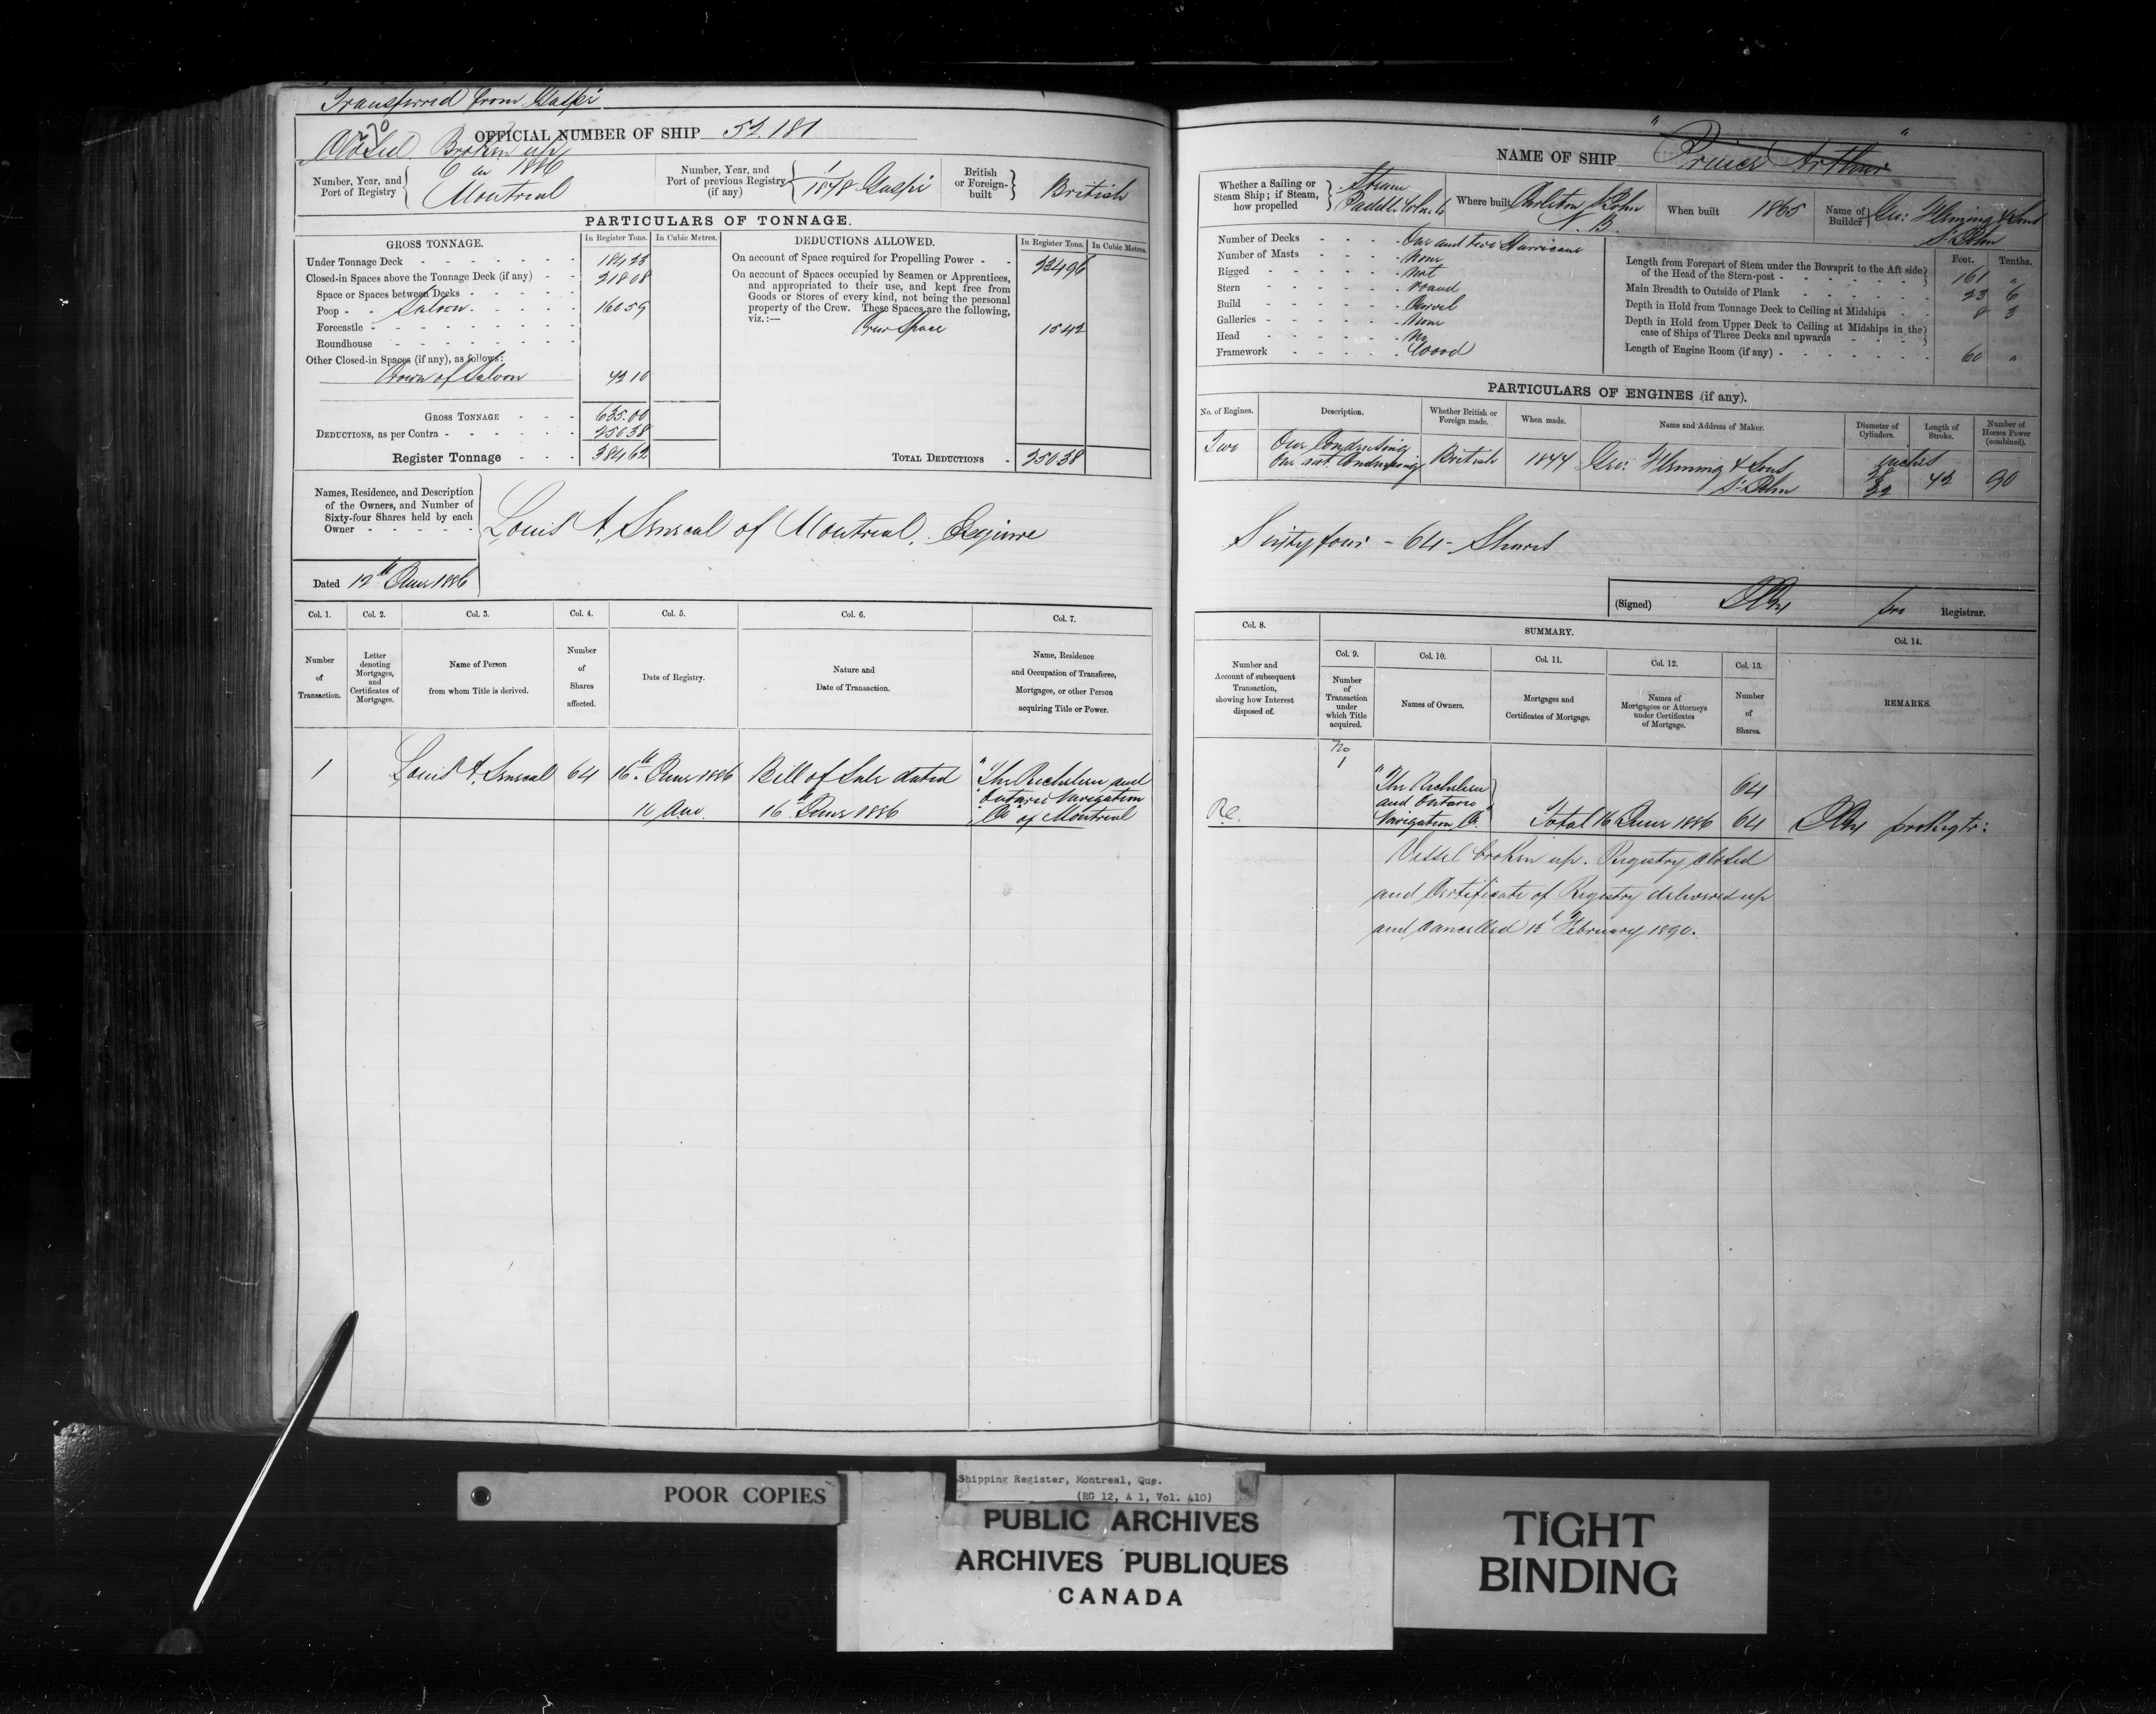 Transferred from Gaspé
OFFICIAL NUMBER OF SHIP 52.181
Closed. Broken up
Number, Year, and Port of Registry
6 in 1886
Montreal
Number, Year, and Port of previous Registry (if any)
1/1878 Gaspé
British or Foreign-built
British
PARTICULARS OF TONNAGE.
GROSS TONNAGE.
In Register Tons.
In Cubic Metres.
DEDUCTIONS ALLOWED.
In Register Tons.
In Cubic Metres.
Under Tonnage Deck
184.23
Closed-in Spaces above the Tonnage Deck (if any)
218.08
Space or Spaces between Decks
Poop Saloon
160.59
Forecastle
Roundhouse
Other Closed-in Spaces (if any), as follows:
Crown of Saloon
42.10
GROSS TONNAGE
635.00
DEDUCTIONS, as per Contra
250.38
Register Tonnage
384.62
On account of Space required for Propelling Power
234.96
On account of Spaces occupied by Seamen or Apprentices,
and appropriated to their use, and kept free from
Goods or Stores of every kind, not being the personal
property of the Crew. These Spaces are the following,
viz.:—
Crew Space
15.42
TOTAL DEDUCTIONS
250.38
Names, Residence, and Description
of the Owners, and Number of
Sixty-four Shares held by each
Owner
Louis A. Senecal of Montreal. Esquire
Dated 12th June 1886
Col. 1.
Col. 2.
Col. 3.
Col. 4.
Col. 5.
Col. 6.
Col. 7.
Number of Transaction.
Letter denoting Mortgages, and Certificates of Mortgages.
Name of Person from whom Title is derived.
Number of Shares affected.
Date of Registry.
Nature and Date of Transaction.
Name, Residence and Occupation of Transferee, Mortgagee, or other Person acquiring Title or Power.
1
Louis A. Senecal
64
16th June 1886
Bill of Sale dated
16th June 1886
"The Richelieu and
Ontario Navigation
Co" of Montreal
NAME OF SHIP
"Prince Arthur"
Whether a Sailing or Steam Ship; if Steam, how propelled
Steam
Paddle Wheels
Where built
Carleton St John
N. B.
When built
1865
Name of Builder
Geo: Fleming & Sons
St John
Number of Decks
One and two Hurricane
Number of Masts
None
Rigged
Not
Stern
Round
Build
Carvel
Galleries
None
Head
No
Framework
Wood
Feet.
Tenths.
Length from Forepart of Stem under the Bowsprit to the Aft side of the Head of the Stern-post
161 "
Main Breadth to Outside of Plank
23 6
Depth in Hold from Tonnage Deck to Ceiling at Midships
8 3
Depth in Hold from Upper Deck to Ceiling at Midships in the case of Ships of Three Decks and upwards
Length of Engine Room (if any)
60 "
PARTICULARS OF ENGINES (if any).
No. of Engines.
Description.
Whether British or Foreign made.
When made.
Name and Address of Maker.
Diameter of Cylinders.
Length of Stroke.
Number of Horses Power (combined).
Two
One Condensing
One not Condensing
British
1844
Geo: Fleming & Sons
St John
inches
42
90
Sixty four - 64 - Shares
(Signed)
pro
Registrar.
Col. 8.
SUMMARY.
Col. 14.
Col. 9.
Col. 10.
Col. 11.
Col. 12.
Col. 13.
Number and Account of subsequent Transaction, showing how Interest disposed of.
Number of Transaction under which Title acquired.
Names of Owners.
Mortgages and Certificates of Mortgage.
Names of Mortgagees or Attorneys under Certificates of Mortgage.
Number of Shares.
REMARKS.
No
1
"The Richelieu
and Ontario
Navigation Co"
64
Total 16 June 1886
64
pro Regtr:
Vessel broken up. Registry closed
and Certificate of Registry delivered up
and cancelled 13th February 1890.
POOR COPIES
Shipping Register, Montreal, Que.
(RG 12, A 1, Vol. 410)
PUBLIC ARCHIVES
ARCHIVES PUBLIQUES
CANADA
TIGHT
BINDING